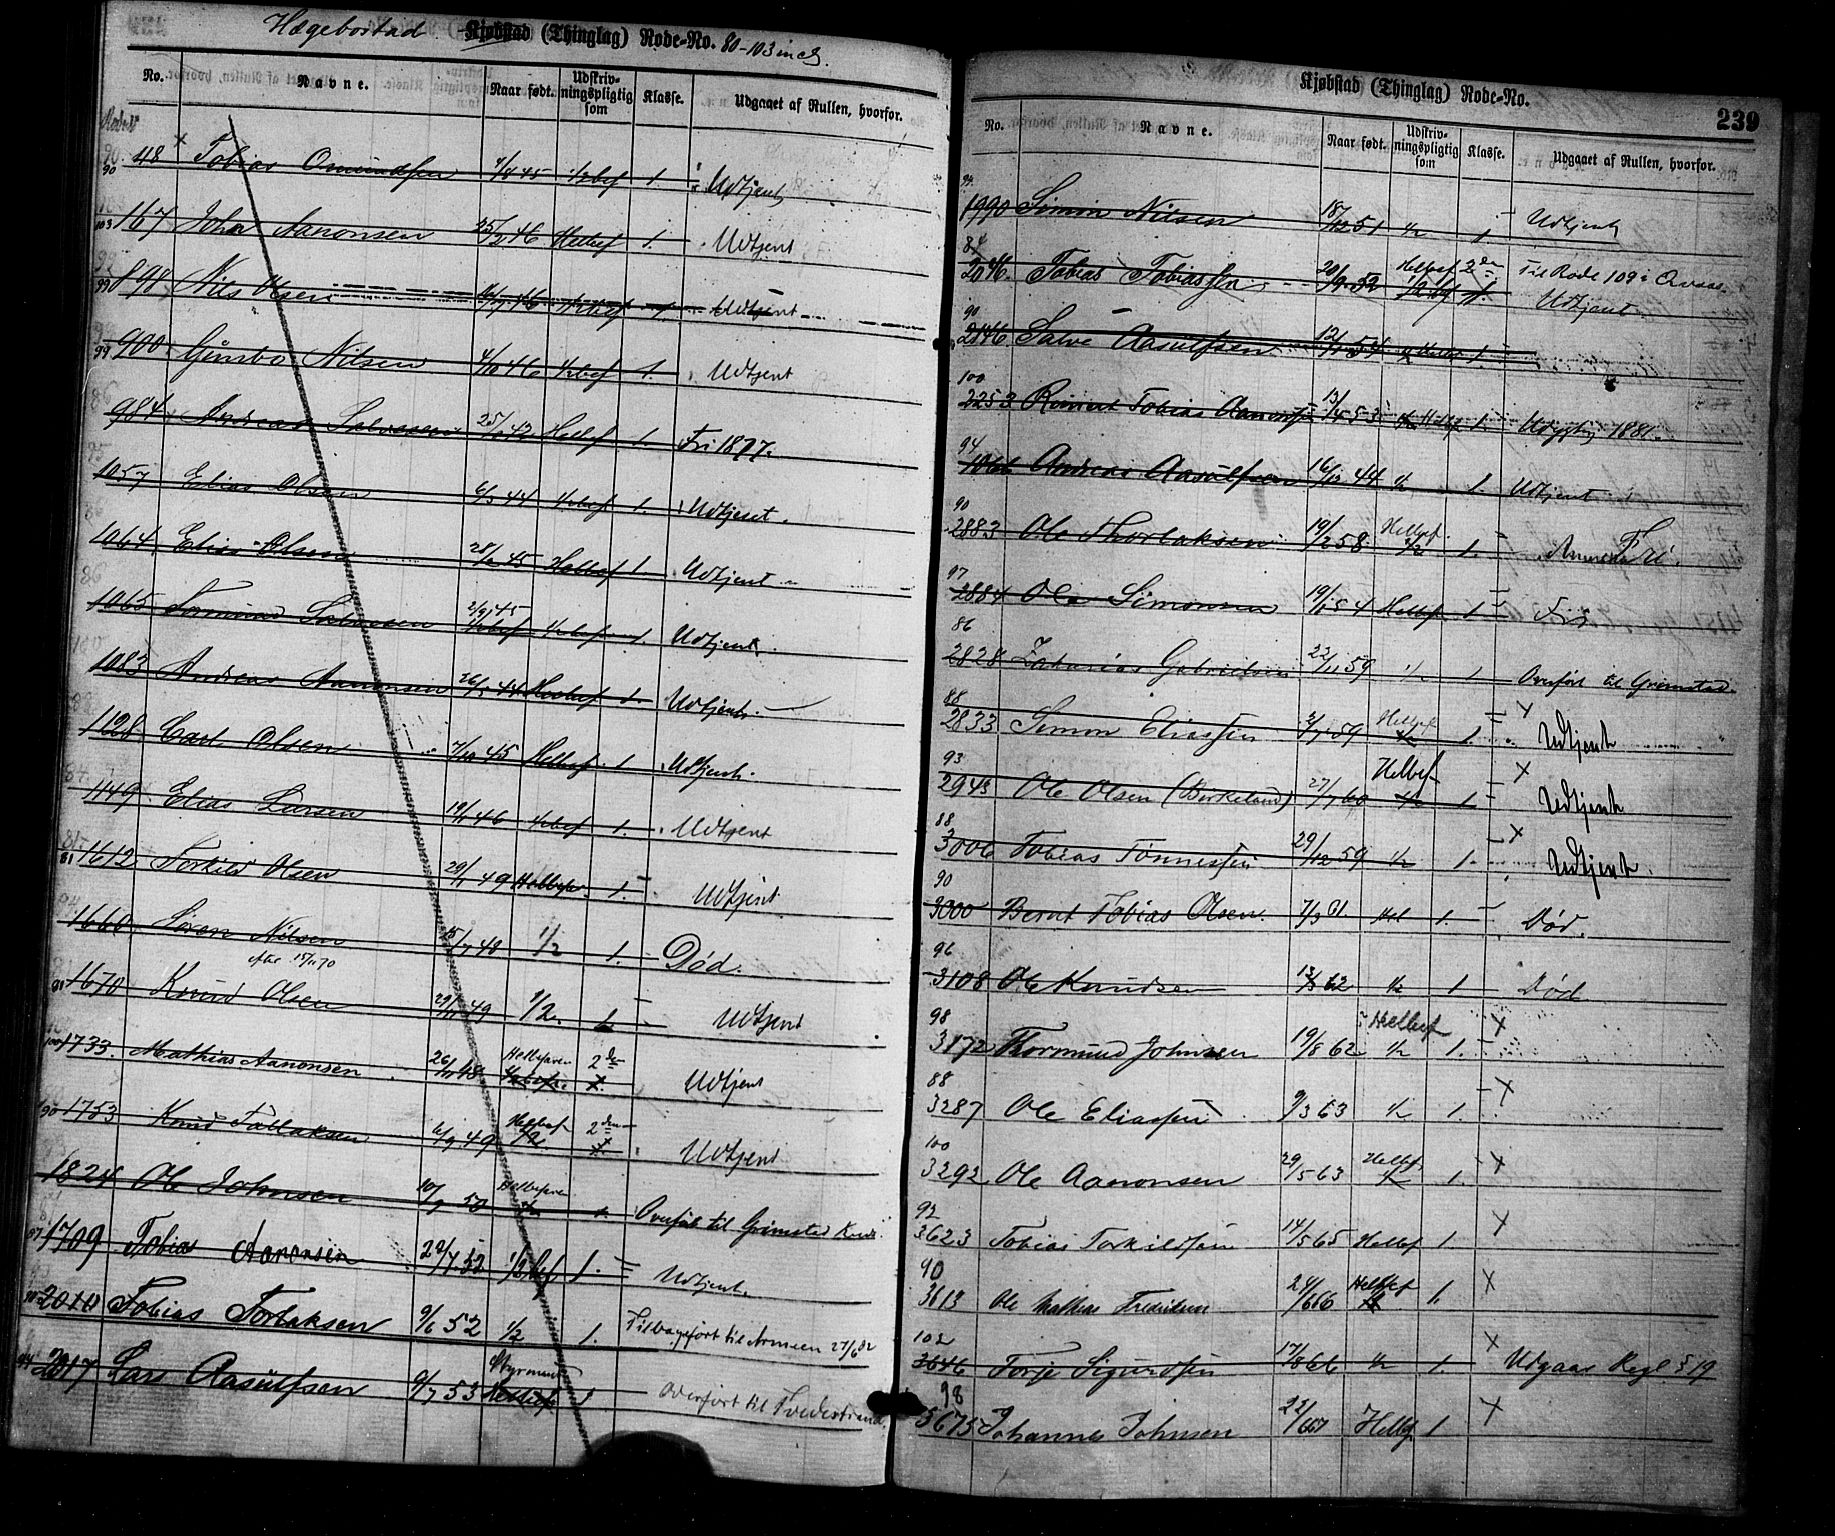 Hægebostad Kjøbstad (Thinglag) Rode-No. 80-103 incl.
No. Navne. Naar født. Udskriv-ningspligtig som Klasse. Udgaaet af Rullen, hvorfor.
90 48 Tobias Omundsen 1/2bef 1. Udtjent
103 167 John Aanonsen 25/2 46 Helbef 1. Udtjent
99 898 Nils Olsen 1/2bef 1. Udtjent
99 900 Gunsto Nilsen 4/10 46 1/2bef 1. Udtjent
984 Andreas Salvesen Helbef 1. Fri 1877.
1057 Elias Olsen 6/5 44 1/2bef 1. Udtjent.
1064 Elias Olsen 28/2 45 Helbef 1. Udtjent
1065 Tormund Salvesen 2/9 45 1/2bef 1. Udtjent.
1083 Andreas Aanonsen 26/5 44 Helbef 1. Udtjent.
1128 Carl Olsen 7/10 45 Helbef 1 Udtjent.
1149 Elias Larsen 46 1/2bef 1. Udtjent
81 1612 Torkild Olsen 29/1 49 Helbefar. 1. Udtjent
1660 Søren Nilsen 15/7 48 1/2 1. Død.
81 1670 Knud Olsen 29/11 49 1/2. 1 Udtjent
100 1733. Mathias Aanonsen 26/11 48 Helbefaren 2den Udtjent
90 1753 Knud Tallaksen 6/9 49 Helbef 1/2 2den Udtjent
1824 Ole Johnsen 10/9 50 Helbefaren 1. Overført til Grimstad
87 1709 Tobias Aanonsen 22/7 52 1/2bef 1. Udtjent.
90 2010 Tobias Torlaksen 9/6 52 1/2 1. Tilbageført til Armeen 27/6 82
94 2017 Lars Aasulfsen 9/7 53 Styrmand Helbef 1 Overført til Tvedestrand
Kjøbstad (Thinglag) Rode-No. 239
No. Navne. Naar født. Udskriv-ningspligtig som Klasse. Udgaaet af Rullen, hvorfor.
94. 1990 Simon Nilsen 18/12 51 1/2 1. Udtjent
84 2046. Tobias Tobiassen 20/9 52 Helbef 1/2bef 2den 1. Til Rode 109 i Qvaas. Udtjent
90 2146 Salve Aasulfsen 12/1 54 1.
100 2253 Reinert Tobias Aanonsen 13/4 53 Helbef 1. Udygtig 1881.
94 1066 Andreas Aasulfsen 16/12 44 1/2 1. Udtjent
90 2883 Ole Thorlaksen 19/2 58 Helbef. 1/2 1. Fri.
97 2884 Ole Simonsen 19/1 54 Helbef 1 Fri
86 2828 Zakarias Gabrielsen 22/11 59 1/2 1 Overført til Grimstad.
88 2833 Simon Eliassen 3/7 59 Helbef 1/2 1. x Udtjent
93 2943 Ole Olsen (Birkeland) 27/1 60 Helbef 1/2 1 x Udtjent
88 3006 Tobias Tønnessen 29/12 59 1/2 1. x Udtjent.
90 3000 Bernt Tobias Olsen. 7/9 61. Hel 1. Død.
96 3108 Ole Knudsen 12/3 62 1/2 1 Død
98 3172 Thormund Johnsen 19/8 62 Helbef 1/2 1. x
88 3287 Ole Eliassen 9/3 63 1/2 1. x
100 3292 Ole Aanonsen 29/5 63 Helbef 1/2 1. x
92 3623 Tobias Torkildsen 14/5 65 Helbef 1. x
90 3613 Ole Mathias Fredriksen 24/6 66 Helbef 1. x
102 3646 Torje Sigurdsen 17/8 66 1/2 1. x Udgaar Regl § 19
98 3675 Johannes Johnsen 22/6 67 Helbf. 1 x